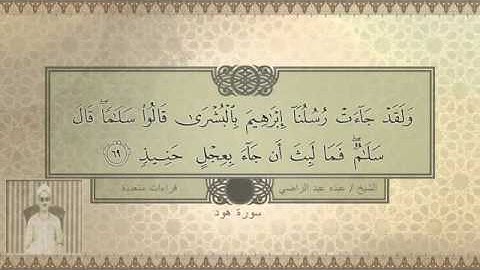 وَلَقَدْ جَآءَتْ رُسُلُنَآ إِبْرَٰهِيمَ بِٱلْبُشْرَىٰ قَالُوا۟ سَلَٰمًا ۖ قَالَ
سَلَٰمٌ ۖ فَمَا لَبِثَ أَن جَآءَ بِعِجْلٍ حَنِيذٍ ٦٩
الشيخ / عبده عبد الراضي
قراءات متعددة
سورة هود